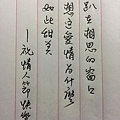 趴在相思的窗口
想这爱情为什麼
如此甜美
——祝情人节快乐